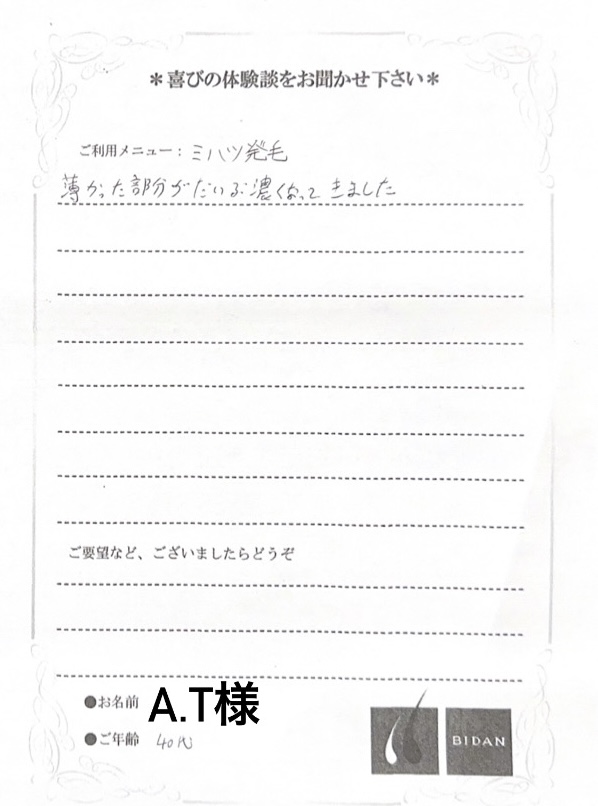 ＊喜びの体験談をお聞かせ下さい＊
ご利用メニュー：ミハツ発毛
薄かった部分がだいぶ濃くなってきました
ご要望など、ございましたらどうぞ
●お名前 A.T様
●ご年齢 40代
BIDAN